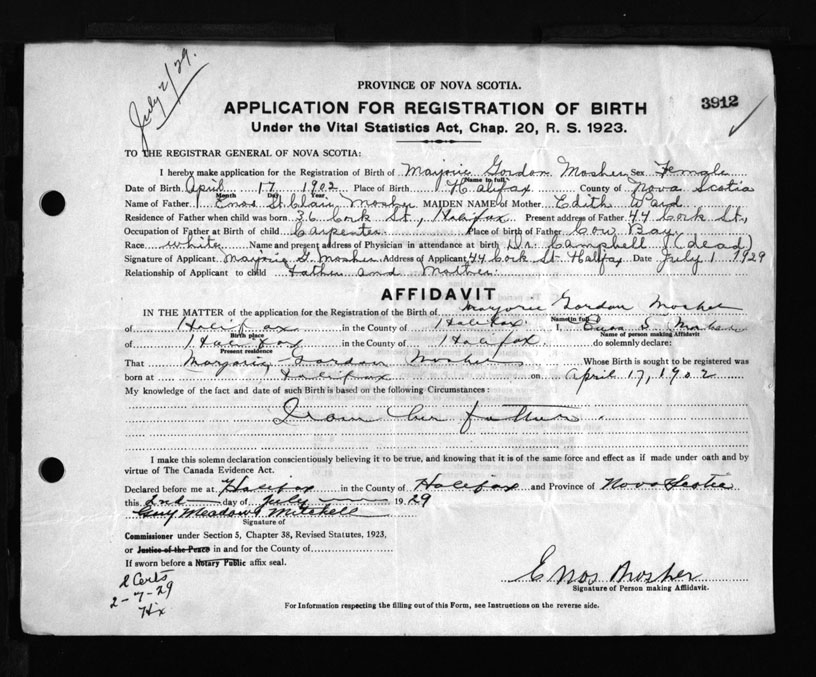 July 2/29.
PROVINCE OF NOVA SCOTIA.
3912
APPLICATION FOR REGISTRATION OF BIRTH
Under the Vital Statistics Act, Chap. 20, R. S. 1923.
TO THE REGISTRAR GENERAL OF NOVA SCOTIA:
I hereby make application for the Registration of Birth of Marjorie Gordon Mosher Sex Female
Name in full
Date of Birth April 17 1902 Place of Birth Halifax County of Nova Scotia
Month Day Year
Name of Father Enos St.Clair Mosher MAIDEN NAME of Mother Edith Ward
Residence of Father when child was born 36 Cork St., Halifax Present address of Father 44 Cork St.,
Occupation of Father at Birth of child Carpenter Place of birth of Father Cow Bay
Race white Name and present address of Physician in attendance at birth Dr. Campbell (dead)
Signature of Applicant Marjorie G. Mosher Address of Applicant 44 Cork St. Halifax Date July 1 1929
Relationship of Applicant to child father and Mother.
AFFIDAVIT
IN THE MATTER of the application for the Registration of Birth of Marjorie Gordon Mosher
Name in full
of Halifax in the County of Halifax I, Enos S. Mosher
Birth place Name of person making Affidavit
of Halifax in the County of Halifax do solemnly declare:
Present residence
That Marjorie Gordon Mosher Whose Birth is sought to be registered was
born at Halifax on April 17, 1902
My knowledge of the fact and date of such Birth is based on the following Circumstances:
I am her father.
I make this solemn declaration conscientiously believing it to be true, and knowing that it is of the same force and effect as if made under oath and by
virtue of The Canada Evidence Act.
Declared before me at Halifax in the County of Halifax and Province of Nova Scotia
this 2nd day of July 1929
Guy Meadows Mitchell
Signature of
Commissioner under Section 5, Chapter 38, Revised Statutes, 1923,
or Justice of the Peace in and for the County of
If sworn before a Notary Public affix seal.
2 Certs
2-7-29
Hx
Enos Mosher
Signature of Person making Affidavit.
For Information respecting the filling out of this Form, see Instructions on the reverse side.